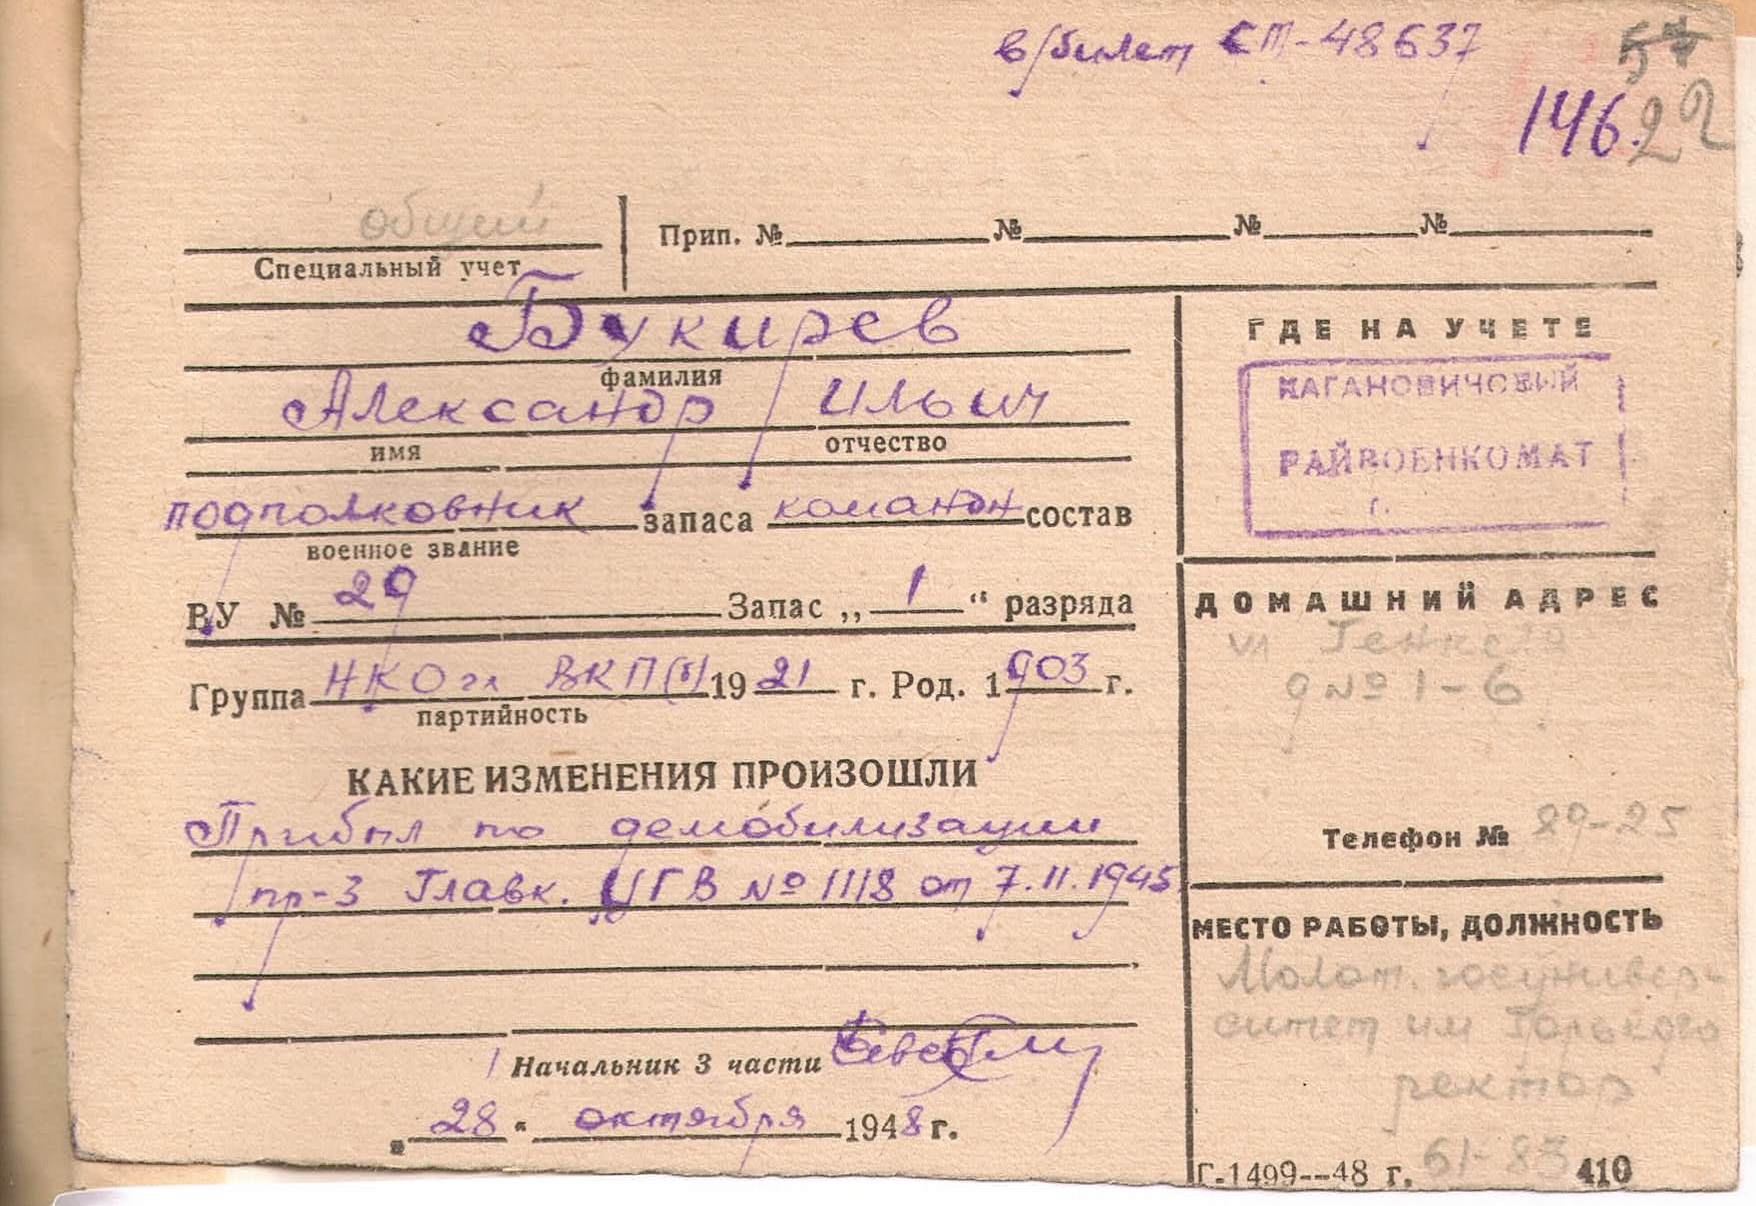 в/билет СТ-48637
57
146.
22
общий
Специальный учет
Прип. № № № №
Букирев
фамилия
Александр Ильич
имя отчество
подполковник запаса командн состав
военное звание
ВУ № 29 Запас „ 1 “ разряда
Группа НКО ВКП(б) 1921 г. Род. 1903 г.
партийность
КАКИЕ ИЗМЕНЕНИЯ ПРОИЗОШЛИ
Прибыл по демобилизации
пр-з Главк. ЦГВ № 1118 от 7.11.1945
Начальник 3 части
„ 28 “ октября 1948 г.
ГДЕ НА УЧЕТЕ
КАГАНОВИЧСКИЙ
РАЙВОЕНКОМАТ
г.
ДОМАШНИЙ АДРЕС
ул Генкеля
д № 1-6
Телефон № 29-25
МЕСТО РАБОТЫ, ДОЛЖНОСТЬ
Молот. госунивер-
ситет им Горького
ректор
61-83
Г-1499--48 г. 410